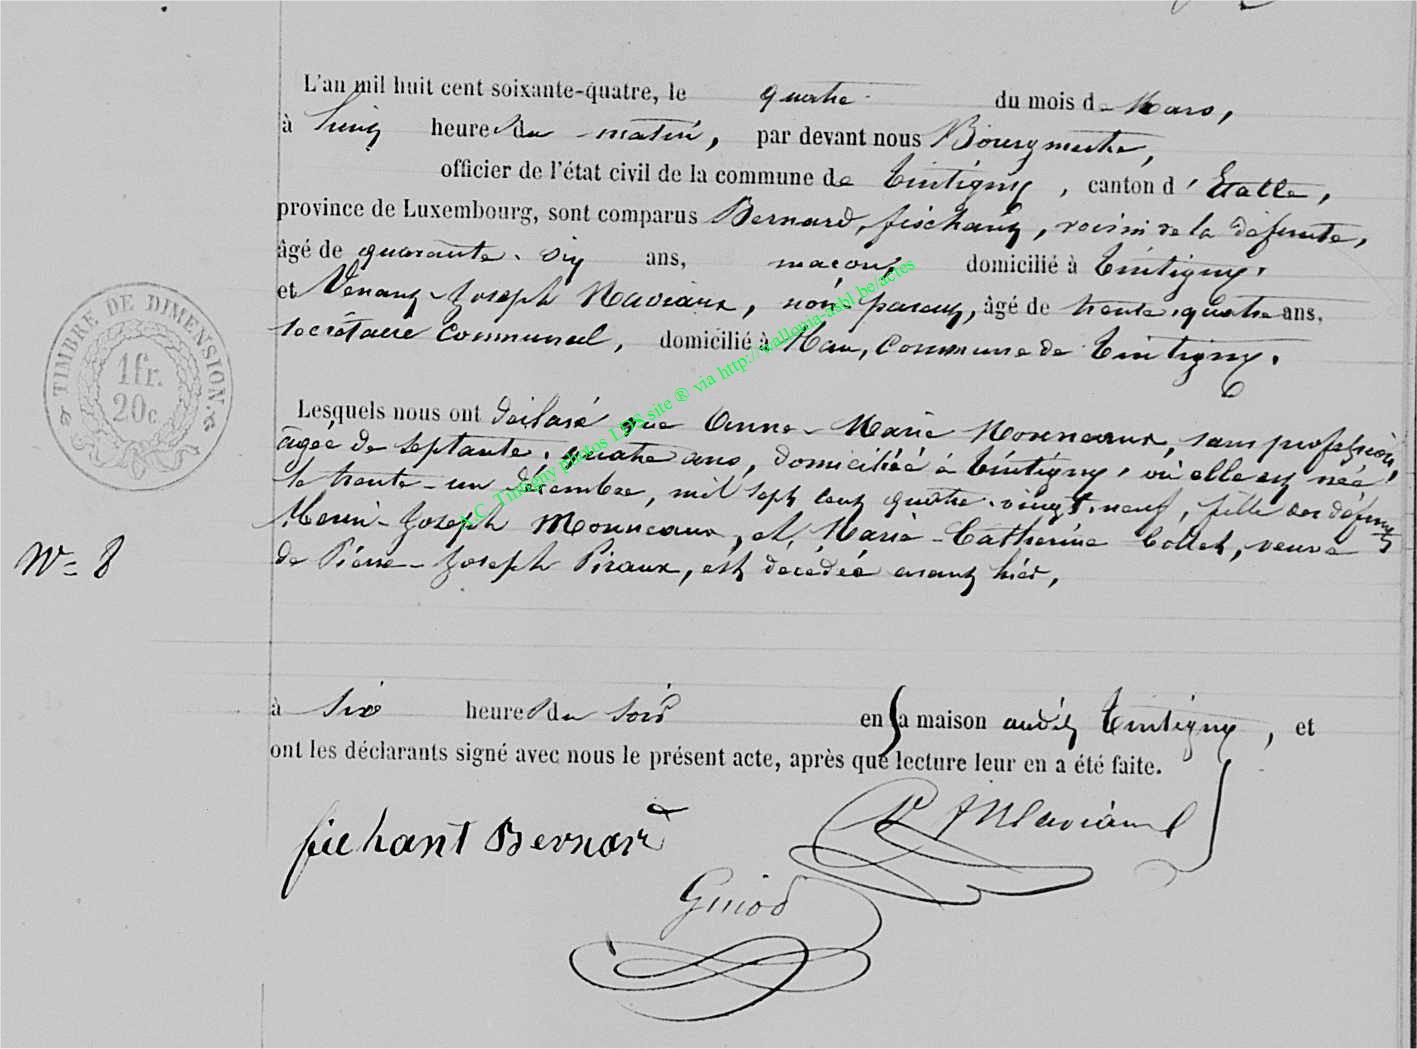 L'an mil huit cent soixante-quatre, le quatre du mois de Mars,
à huit heures du matin, par devant nous Bourgmestre,
officier de l'état civil de la commune de Tintigny, canton d'Etalle,
province de Luxembourg, sont comparus Bernard, fischant, voisin de la défunte,
âgé de quarante-six ans, maçon, domicilié à Tintigny,
et Venant-Joseph Naviaux, non-parent, âgé de trente-quatre ans,
secrétaire Communal, domicilié à Han, Commune de Tintigny.
Lesquels nous ont déclaré que Anne-Marie Monneaux, sans profession,
âgée de septante-quatre ans, domiciliée à Tintigny, où elle est née
le trente-un décembre, mil sept cent quatre-vingt-neuf, fille des défunts
Henri-Joseph Monneaux, et Marie-Catherine Collet, veuve
de Pierre-Joseph Piraux, est décédée avant hier,
à six heures du soir en sa maison audit Tintigny, et
ont les déclarants signé avec nous le présent acte, après que lecture leur en a été faite.
fichant Bernard
Guiod
TIMBRE DE DIMENSION.
1fr.
20c.
N° 8
A.C. Tintigny photos LDS site ® via http://wallonia-asbl.be/actes